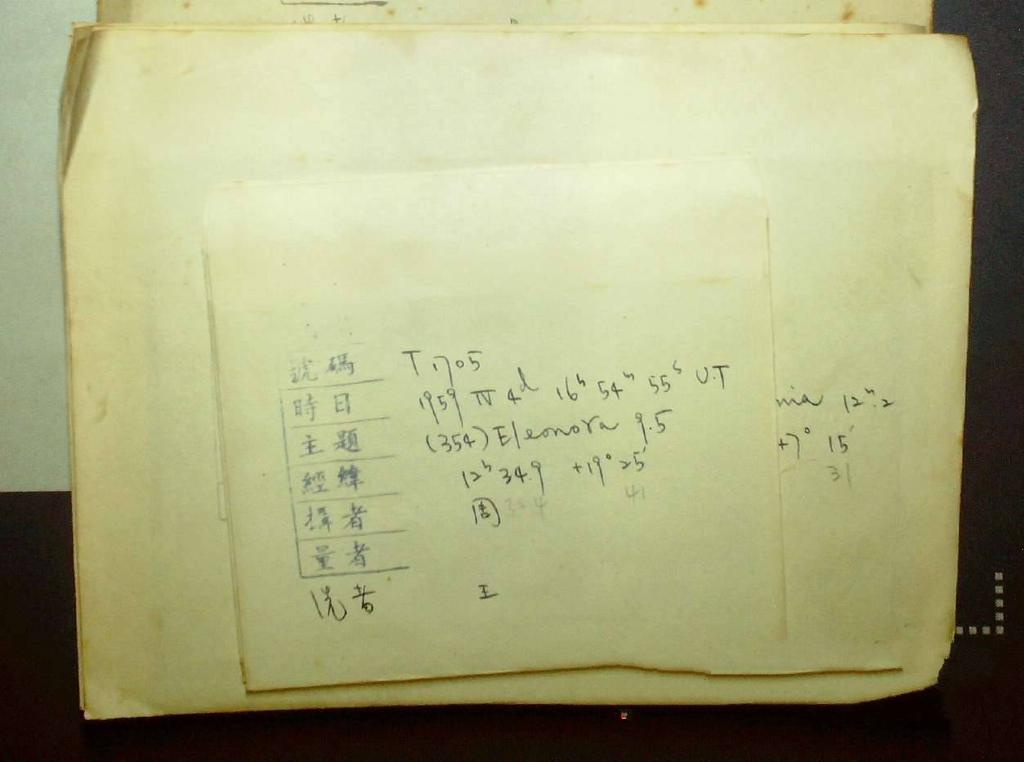 號碼 T 1705
時日 1959 IV 4d 16h 54m 55s U.T
主題 (354) Eleonora 9.5
nia 12m.2
經緯 12h 34.9 +19° 25'
+7° 15'
41
31
攝者 周
量者
洗者 王